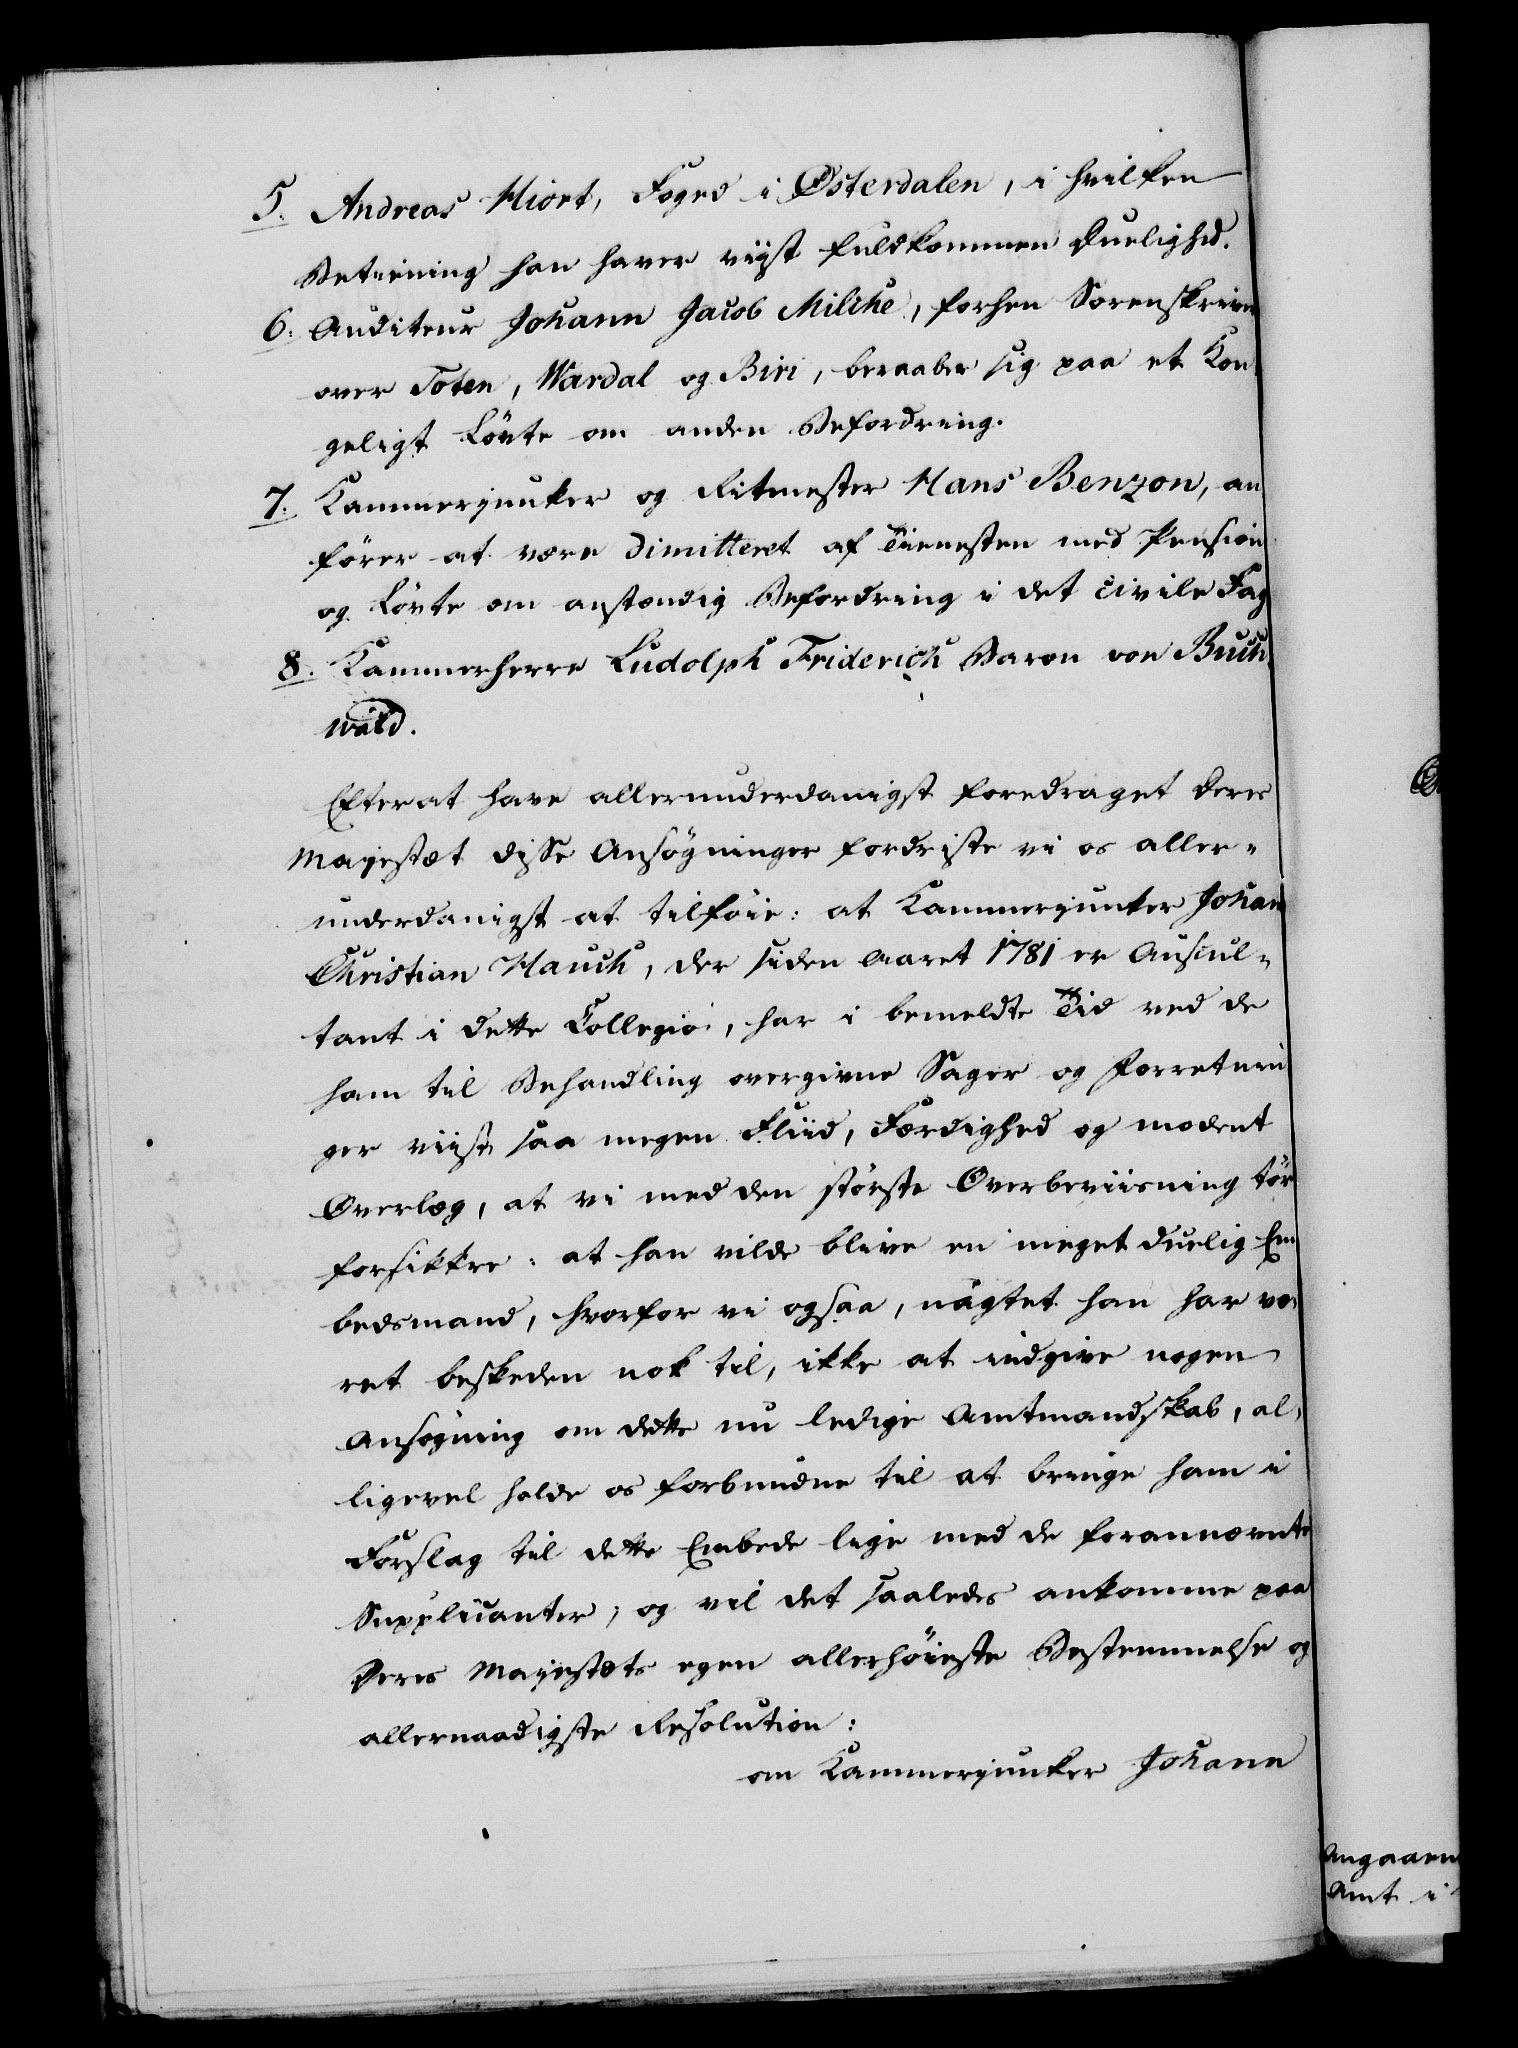 5. Andreas Hiort, Foged i Østerdalen, i hvilken
Betiening han haver viist fuldkommen Duelighed.
6. Auditeur Johann Jacob Milche, forhen Sorenskriver
over Toten, Wardal og Biri, beraaber sig paa et Kon
geligt Løvte om anden Befordring.
7. Kammerjunker og Ritmester Hans Benzon, an
fører at være dimitteret af Tienesten med Pension
og Løvte om anstændig Befordring i det civile Fag
8. Kammerherre Ludolph Friderich Baron von Buch
wald.
Efterat have allerunderdanigst foredraget Deres
Majestæt disse Ansøgninger fordriste vi os aller-
underdanigst at tilføie: at Kammerjunker Johan
Christian Hauch, der siden Aaret 1781 er Auscul-
tant i dette Collegio, har i bemeldte Tid ved de
ham til Behandling overgivne Sager og Forretnin
ger viist saa megen Fliid, Færdighed og modent
Overlæg, at vi med den største Overbeviisning tør
forsikkre: at han vilde blive en meget duelig Em
bedsmand, hvorfor vi ogsaa, uagtet han har væ
ret beskeden nok til, ikke at indgive nogen
Ansøgning om dette nu ledige Amtmandskab, al-
ligevel holde os forbundne til at bringe ham i
Forslag til dette Embede lige med de forannævnte
Supplicanter; og vil det saaledes ankomme paa
Deres Majestæts egen allerhøieste Bestemmelse og
allernaadigste Resolution:
om Kammerjunker Johann
Angaaen
Amt i